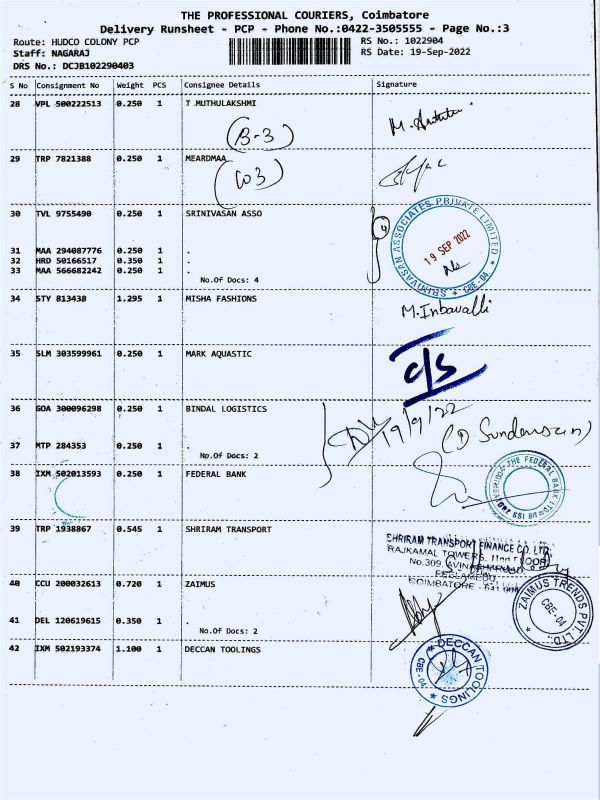 THE PROFESSIONAL COURIERS, Coimbatore
Delivery Runsheet - PCP - Phone No.:0422-3505555 - Page No.:3
Route: HUDCO COLONY PCP
RS No.: 1022904
Staff: NAGARAJ
RS Date: 19-Sep-2022
DRS No.: DCJB102290403
S No Consignment No Weight PCS Consignee Details Signature
28 VPL 500222513 0.250 1 T MUTHULAKSHMI
(B-3)
29 TRP 7821388 0.250 1 MEARDMAA
(103)
30 TVL 9755490 0.250 1 SRINIVASAN ASSO
SRINIVASAN ASSOCIATES PRIVATE LIMITED * CBE-04 *
4
19 SEP 2022
31 MAA 294087776 0.250 1 .
32 HRD 50166517 0.350 1 .
33 MAA 566682242 0.250 1 .
No.Of Docs: 4
34 STY 813438 1.295 1 MISHA FASHIONS
M. Inbavalli
35 SLM 303599961 0.250 1 MARK AQUASTIC
c/s
36 GOA 300096298 0.250 1 BINDAL LOGISTICS
19/9/22
37 MTP 284353 0.250 1 .
No.Of Docs: 2
38 IXM 502013593 0.250 1 FEDERAL BANK
THE FEDERAL BANK LTD
39 TRP 1938867 0.545 1 SHRIRAM TRANSPORT
SHRIRAM TRANSPORT FINANCE CO. LTD.
RAJKAMAL TOWERS, IInd FLOOR
No.309, AVINASHI ROAD
PEELAMEDU
COIMBATORE - 641 004
40 CCU 200032613 0.720 1 ZAIMUS
ZAIMUS TRENDS PVT. LTD.
CBE-04
41 DEL 120619615 0.350 1 .
No.Of Docs: 2
42 IXM 502193374 1.100 1 DECCAN TOOLINGS
DECCAN TOOLINGS * CBE-04 *